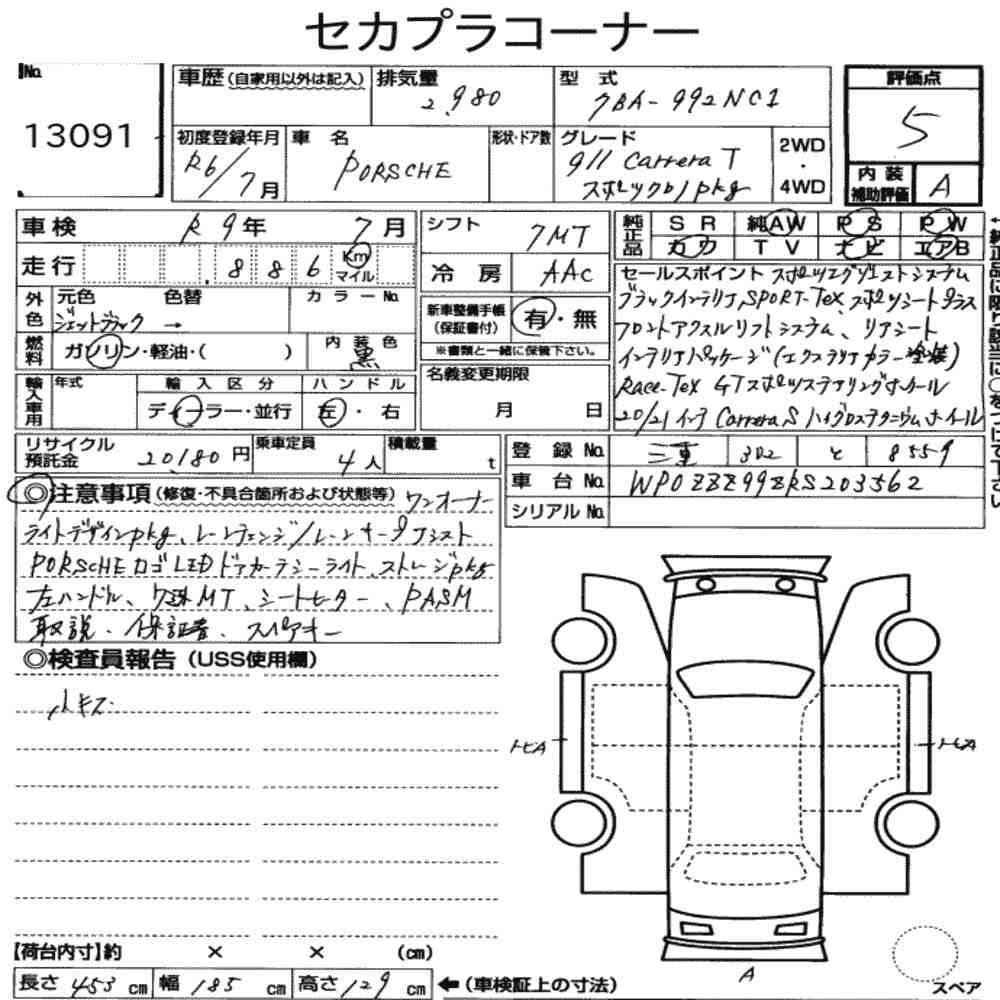 セカプラコーナー
No.
13091
車歴(自家用以外は記入)
排気量 2,980
型 式 7BA-992NC1
評価点 5
初度登録年月 R6/7月
車 名 PORSCHE
形状・ドア数
グレード 911 Carrera T
スポーツクロノpkg
2WD・4WD
内装補助評価 A
車検 R9年 7月
シフト 7MT
純正品 SR 純AW PS PW
カワ TV ナビ エアB
走行 886 Km マイル
冷房 AAC
外色 元色 色替 カラーNo.
ジェットブラック →
新車整備手帳(保証書付) 有・無
※書類と一緒に保管下さい。
燃料 ガソリン・軽油・( )
内装色 黒
名義変更期限
月 日
輸入車用 年式 輸入区分 ハンドル
ディーラー・並行 左・右
セールスポイント スポーツエグゾーストシステム
ブラックインテリア、SPORT-Tex、スポーツシートプラス
フロントアクスルリフトシステム、リアシート
インテリアパッケージ(エクステリアカラー塗装)
Race-Tex GTスポーツステアリングホイール
20/21インチ Carrera S ハイグロスチタニウムホイール
←純正品に限り該当に○をつけて下さい
リサイクル預託金 20,180円
乗車定員 4人
積載量 t
登録No. 三重 302 と 8559
車台No. WP0ZZZ99ZRS203562
シリアルNo.
◎注意事項(修復・不具合箇所および状態等) ワンオーナー
ライトデザインpkg、レーンチェンジ/レーンキープアシスト
PORSCHEロゴLEDドアカーテシーライト、ストレージpkg
左ハンドル、7速MT、シートヒーター、PASM
取説、保証書、スペアキー
◎検査員報告(USS使用欄)
小キズ
トビA
トビA
A
【荷台内寸】約 × × (cm)
長さ 453 cm 幅 185 cm 高さ 129 cm ←(車検証上の寸法)
スペア